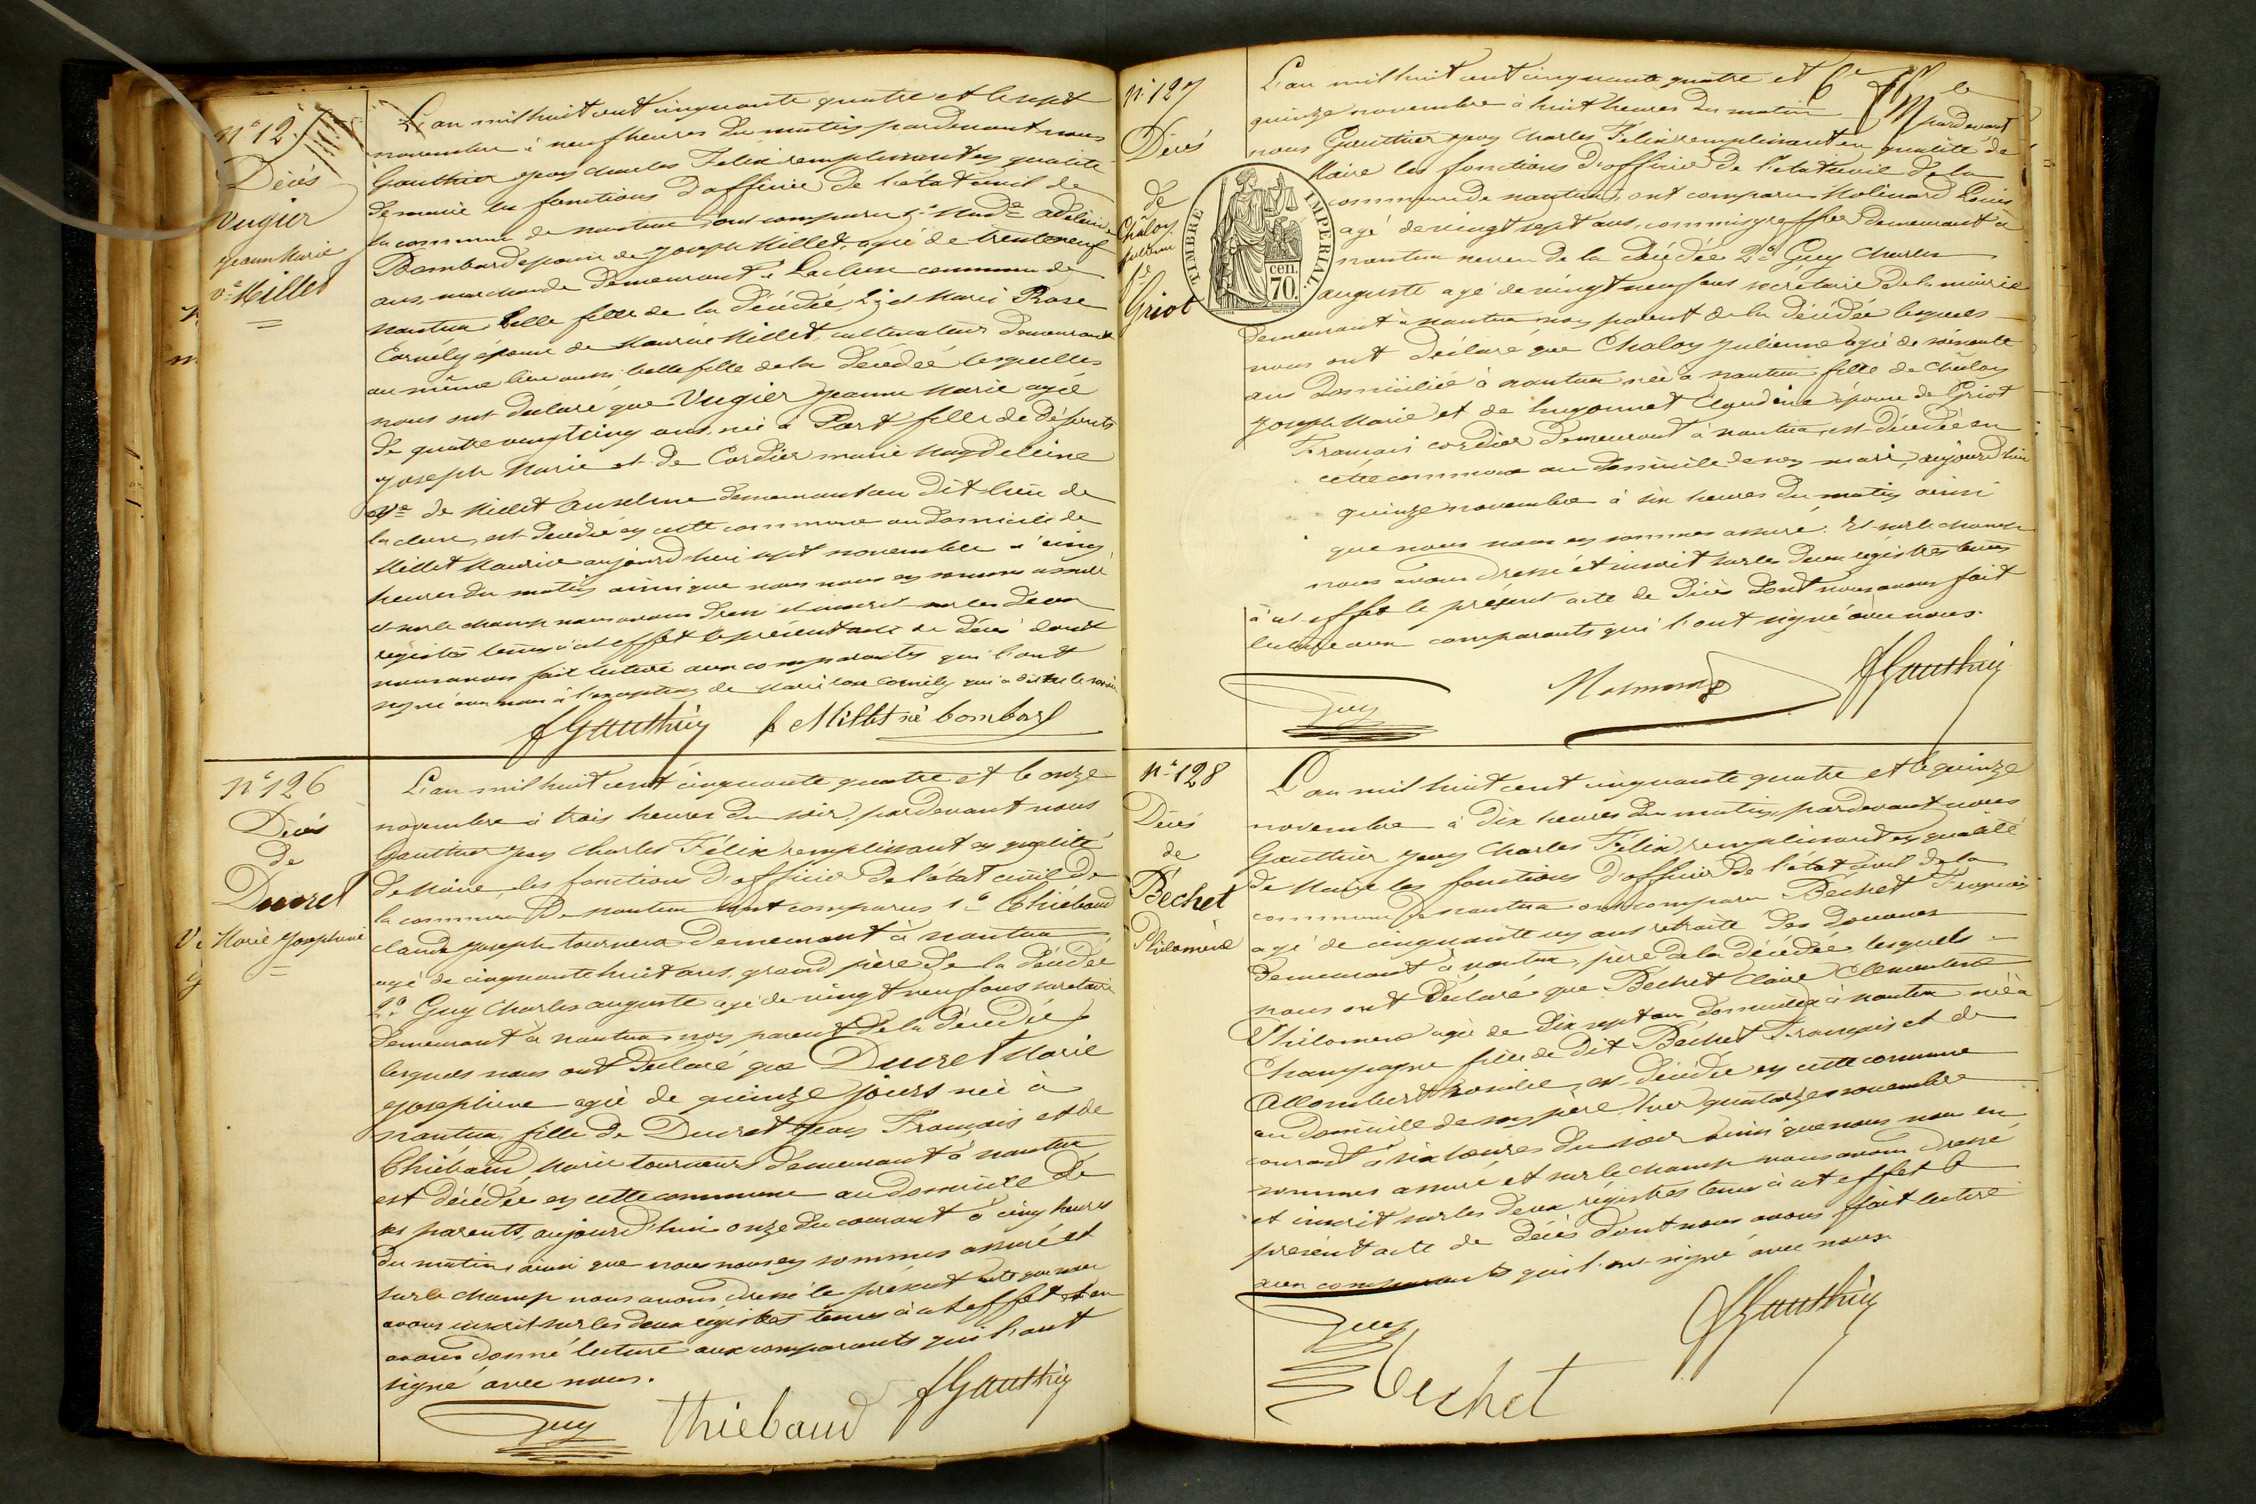 N° 12
Décès
Vugier
Jeanne Marie
Vᵉ Millet
L'an mil huit cent cinquante quatre et le sept
novembre à neuf heures du matin pardevant nous
Gauthier Jean Charles Félix remplissant en qualité
de maire les fonctions d'officier de l'état civil de
la commune de nantua ont comparu
Bombard épouse de Joseph Millet, agé de trente neuf
ans, marchande demeurant à Lacluse commune de
nantua belle fille de la décédée, 2° et Marie Rose
Cornély épouse de Maurice Millet, cultivateur demeurant
au même lieu aussi belle fille de la décédée lesquelles
nous ont déclaré que Vugier Jeanne Marie agée
de quatre vingt cinq ans, née à Port fille de défunts
Joseph Marie et de Cordier marie Magdeleine
Vᵉ de Millet Anselme demeurant au dit lieu de
la cluse, est décédée en cette commune au domicile de
Millet Maurice aujourd'hui sept novembre à cinq
heures du matin ainsi que nous nous en sommes assuré
et sur le champ nous avons dressé et inscrit sur les deux
registres tenus à cet effet le présent acte de décès dont
nous avons fait lecture aux comparantes qui l'ont
signé avec nous à l'exception de Marie Rose Cornély qui a dit ne le savoir
JGauthier f Millet né bombard
N° 126
Décès
de
Ducret
Marie Josephine
L'an mil huit cent cinquante quatre et le onze
novembre à trois heures du soir, pardevant nous
Gauthier Jean Charles Félix remplissant en qualité
de Maire les fonctions d'officier de l'état civil de
la commune De nantua sont comparus 1° Thiébaud
claude Joseph tourneur demeurant à nantua
agé de cinquante huit ans, grand père de la décédée
2° Guy Charles auguste agé de vingt neuf ans secrétaire
demeurant à nantua non parent de la décédée
lesquels nous ont déclaré que Ducret Marie
Josephine agée de quinze jours née à
nantua, fille de Ducret Jean François et de
Thiébaud Marie tourneurs demeurant à nantua
est décédée en cette commune au domicile de
ses parents, aujourd'hui onze du courant à cinq heures
du matin, ainsi que nous nous en sommes assuré et
sur le champ nous avons dressé le présent acte que nous
avons inscrit sur les deux régistres tenus à cet effet et en
avons donné lecture aux comparants qui l'ont
signé avec nous.
Guy thiebaud JGauthier
N° 127
Décès
de
Châlon
Julienne
fᵉ
Griot
TIMBRE IMPERIAL
70. cen.
L'an mil huit cent cinquante quatre et le
quinze novembre à huit heures du matin pardevant
nous Gauthier Jean Charles Félix remplissant en qualité de
Maire les fonctions d'officier de l'état civil de la
commune de nantua, ont comparu Molinard Louis
agé de vingt sept ans, commis greffier demeurant à
nantua neveu de la décédée 2° Guy Charles
auguste agé de vingt neuf ans secrétaire de la mairie
demeurant à nantua non parent de la décédée lesquels
nous ont déclaré que Chalon Julienne agée de soixante
ans domiciliée à nantua née à nantua fille de Châlon
Joseph Marie et de hugonnet Claudine épouse de Griot
François cordier demeurant à nantua, est décédée en
cette commune au domicile de son mari, aujourd'hui
quinze novembre à six heures du matin ainsi
que nous nous en sommes assuré. Et sur le champ
nous avons dressé et inscrit sur les deux régistres tenus
à cet effet le présent acte de décès dont nous avons fait
lecture aux comparants qui l'ont signé avec nous.
Guy JGauthier
N° 128
Décès
de
Béchet
Philomène
L'an mil huit cent cinquante quatre et le quinze
novembre à dix heures du matin, pardevant nous
Gauthier Jean Charles Félix, remplissant en qualité
de Maire les fonctions d'officier de l'état civil de la
commune De nantua ont comparu Béchet François
agé de cinquante un ans retraité des Douanes
demeurant à nantua, père de la décédée lesquels
nous ont déclaré que Béchet Claire Clémentine
Philomène agée de dix sept ans domiciliée à nantua née à
Champagne fille de dit Béchet François et de
est décédée en cette commune
au domicile de son père, hier quatorze novembre
courant à six heures du soir ainsi que nous nous en
sommes assuré et sur le champ nous avons dressé
et inscrit sur les deux régistres tenus à cet effet le
présent acte de décès dont nous avons fait lecture
aux comparants qui l'ont signé avec nous.
Guy
Bechet
JGauthier